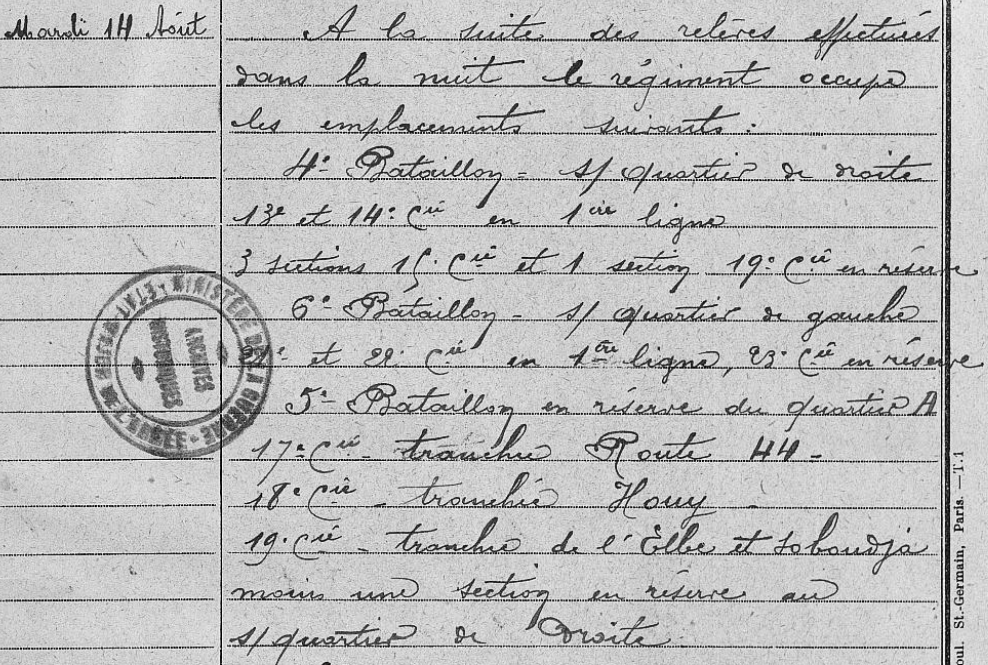 Mardi 14 Août
A la suite des relèves effectuées
dans la nuit le régiment occupe
les emplacements suivants :
4e Bataillon = s/ quartier de droite
13e et 14e Cie en 1ère ligne
3 sections 15e Cie et 1 section 19e Cie en réserve
6e Bataillon - s/ quartier de gauche
21e et 22e Cie en 1ère ligne, 23e Cie en réserve
5e Bataillon en réserve du quartier A
17e Cie - tranchée Route 44 -
18e Cie - tranchée Houy -
19e Cie - tranchée de l'Elbe et
moins une section en réserve au
s/ quartier de Droite.
MINISTÈRE DE LA GUERRE
DE L'ARMÉE
ARCHIVES
HISTORIQUES
St.-Germain, Paris. — T.1